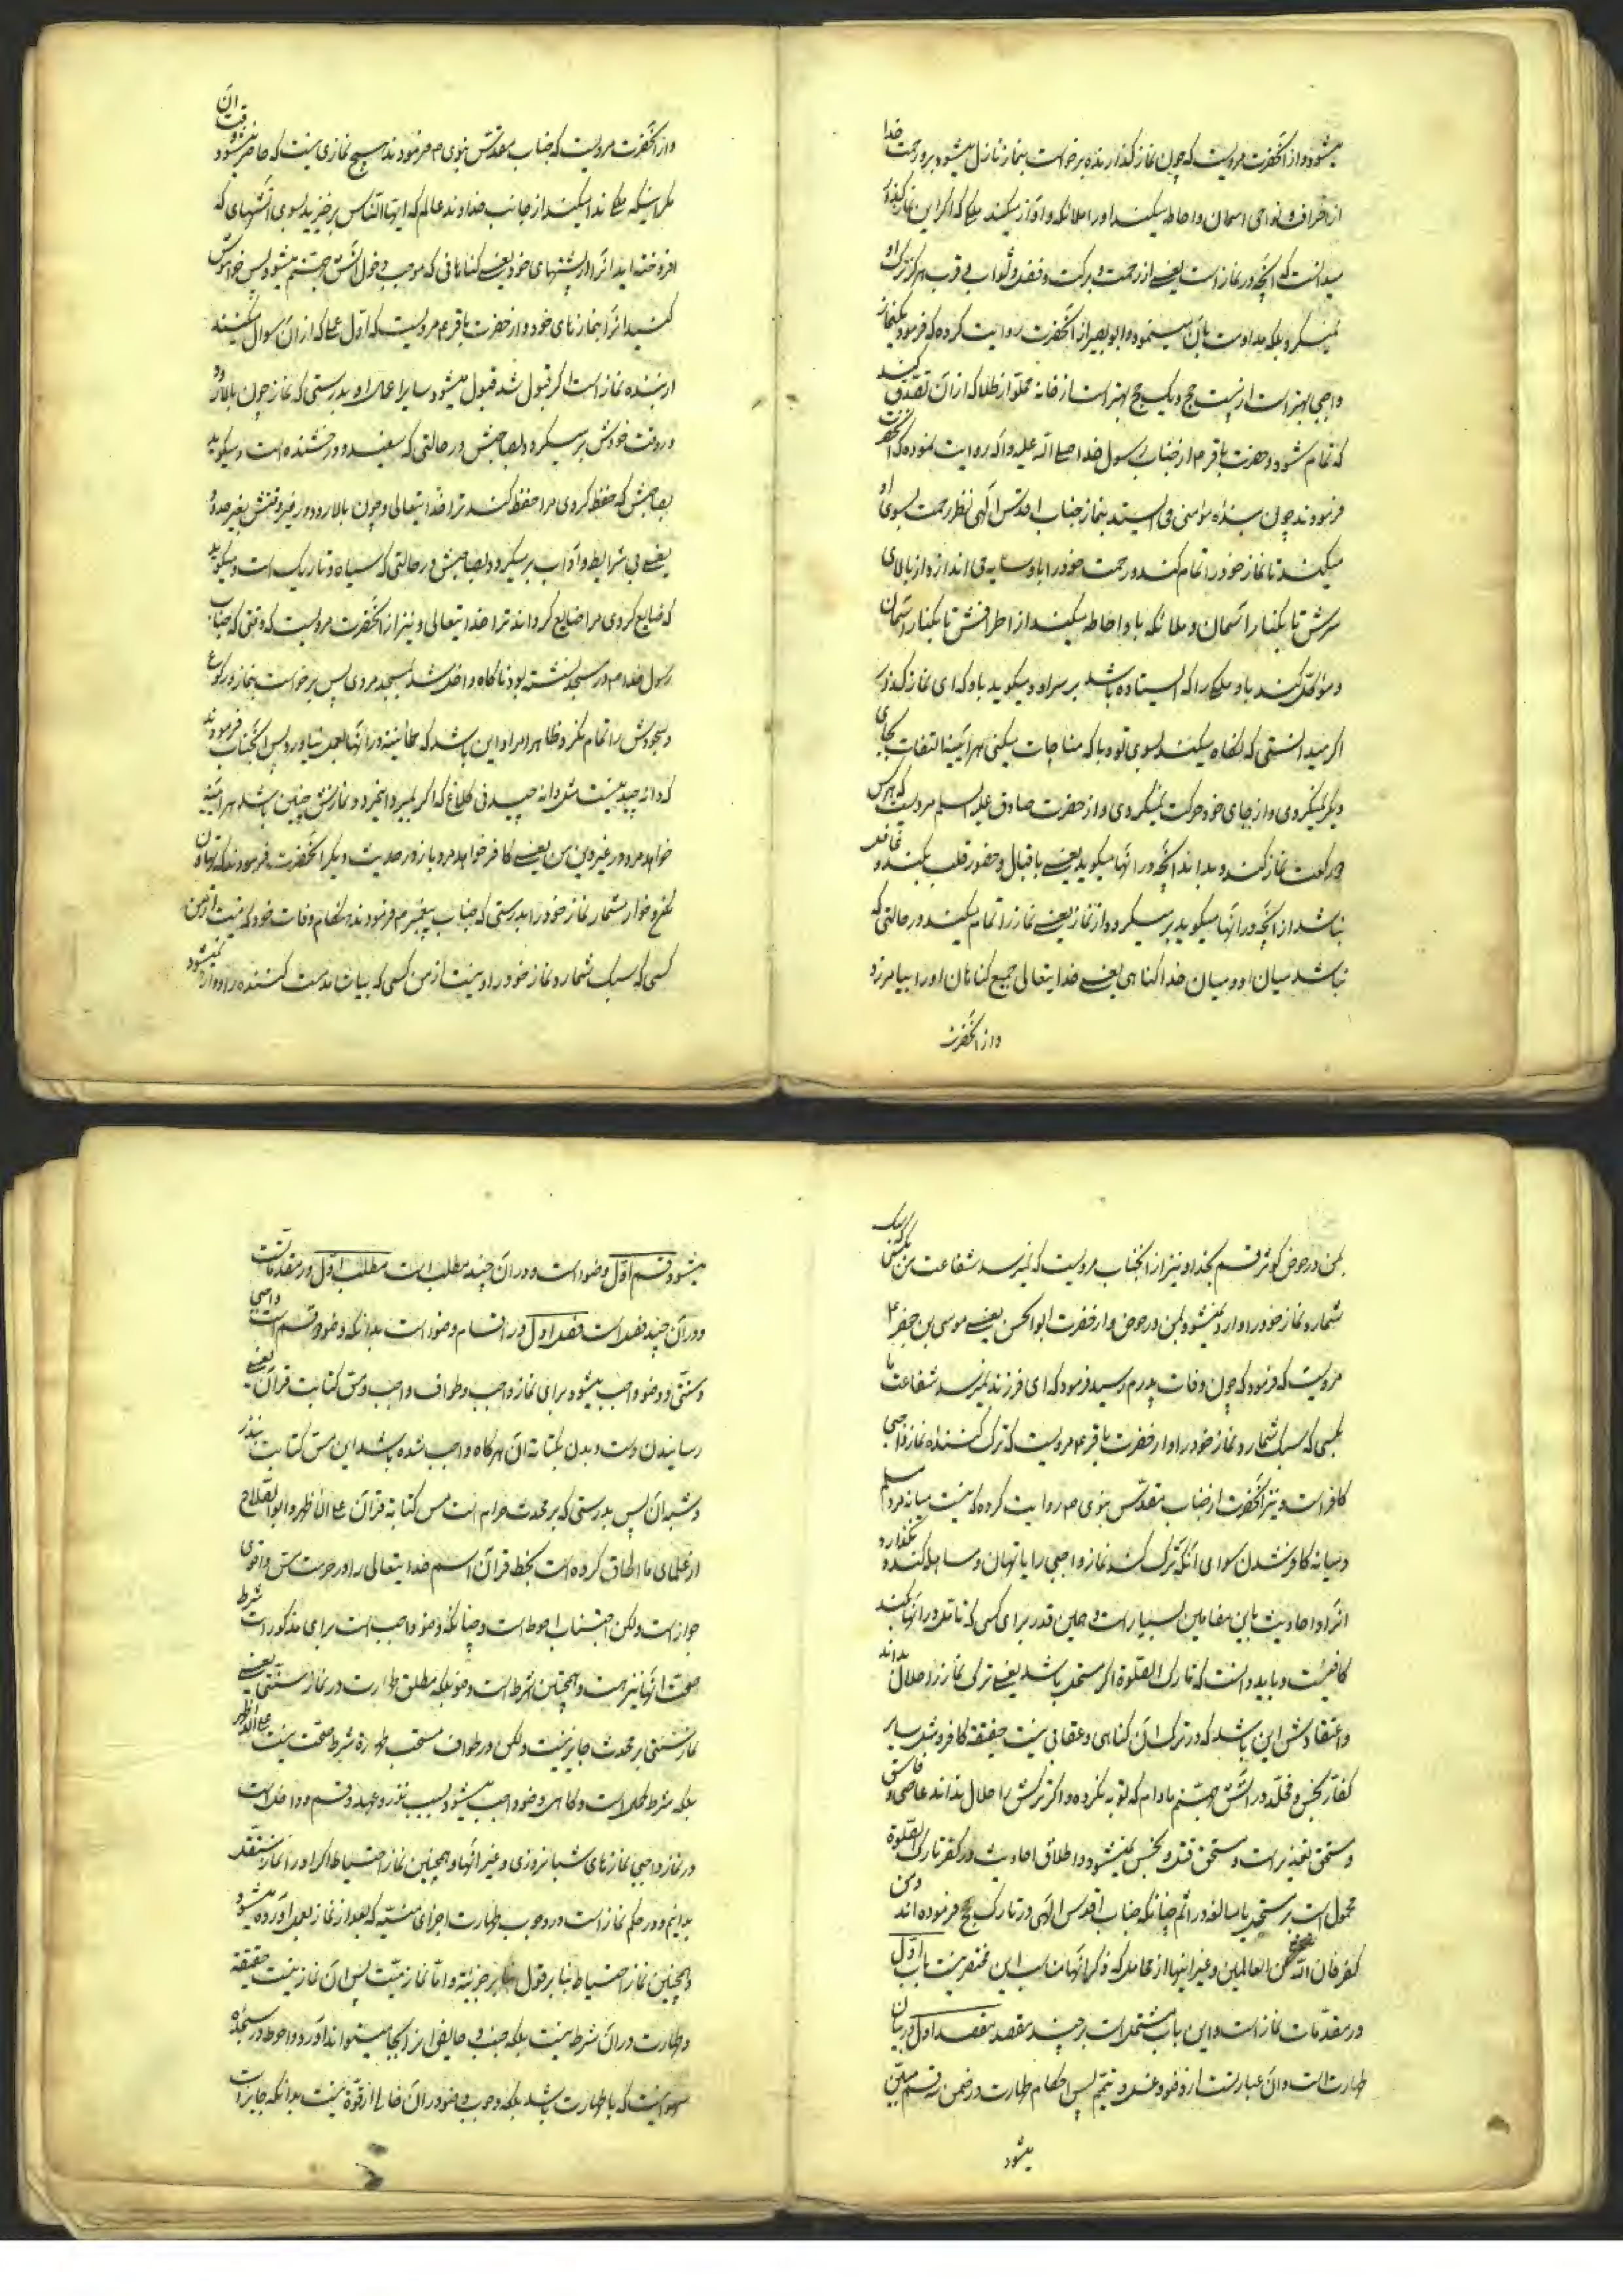 میشود و از آنحضرت مرویست که چون نماز گذارنده برخواست بنماز نازل میشود برو رحمت خدا
از اطراف و نواحی اسمان و احاطه میکنند او را ملائکه و آواز میکند ملکی که اگر این نماز گذارنده
میدانست که آنچه در نماز است یعنی از رحمت و برکت و فضل و ثواب و قرب هرگز ترک او
نمیکرد بلکه مداومت بآن مینمود و ابو بصیر از آنحضرت روایت کرده که فرمود یکنماز
واجبی بهتر است از بیست حج و یک حج بهتر است از خانه مملو از طلا که از آن تصدق کنند
که تمام شود و حضرت باقر ۴ از جناب رسول خدا صلی الله علیه و آله روایت نموده که آنحضرت
فرمودند چون بنده مؤمنی می ایستد بنماز جناب اقدس الهی نظر رحمت بسوی او
میکند تا نماز خود را تمام کند و رحمت خود را باو سایه می اندازد از بالای
سرش تا بکنار آسمان و ملائکه باو احاطه میکنند از اطرافش تا بکنار آسمان
و مؤکل کند باو ملکی را که ایستاده باشد بر سر او و میگوید باو که ای نماز گذار
اگر میدانستی که نگاه میکند بسوی تو و با که مناجات میکنی هر آینه التفات بجای
دیگر نمیکردی و از جای خود حرکت نمیکردی و از حضرت صادق علیه السلم مرویست که هرکس
دو رکعت نماز کند و بداند آنچه در آنها میگوید یعنی باقبال و حضور قلب بکند و غافل
نباشد از آنچه در آنها میگوید بر میگردد از نماز یعنی نماز را تمام میکند در حالتی که
نباشد میان او و میان خدا گناهی یعنی خدایتعالی جمیع گناهان او را بیامرزد
و از آنحضرت
و از آنحضرت مرویست که جناب مقدس نبوی ص فرمودند هیچ نمازی نیست که حاضر میشود وقت آن
مگر اینکه ملکی ندا میکند از جانب خداوند عالم که ایها الناس برخیزید بسوی آتشهای که
افروخته اید انرا در پشتهای خود یعنی گناهانی که موجب دخول آتش جهنم میشود پس خواموش
کنید انرا بنمازهای خود و از حضرت باقر ۴ مرویست که اول عملی که از آن سوال میکنند
از بنده نماز است اگر قبول شد قبول میشود سایر اعمال او بدرستی که نماز چون بالا رود
در وقت خودش بر میگردد بصاحبش در حالتی که سفید و درخشنده است و میگوید
بصاحبش که حفظ کردی مرا حفظ کند ترا خدایتعالی و چون بالا رود در غیر وقتش بغیر حدود
یعنی بی شرایط و آداب بر میگردد بصاحبش در حالتی که سیاه و تاریک است و میگوید
که ضایع کردی مرا ضایع گرداند ترا خدایتعالی و نیز از آنحضرت مرویست که وقتی که جناب
رسول خدا ص در مسجد نشسته بود ناگاه داخل شد بمسجد مردی پس برخواست بنماز و رکوع
و سجودش را تمام نکرد و ظاهرا مراد این باشد که طمانینه در آنها بعمل نیاورد پس آنجناب فرمودند
که دانه چید نیست مثل دانه چیدنی کلاغ که اگر بمیرد اینمرد و نمازش چنین باشد هر آینه
خواهد مرد در غیر دین من یعنی کافر خواهد مرد و باز در حدیث دیگر آنحضرت فرمودند که تهاون
مکن و خوار مشمار نماز خود را بدرستی که جناب پیغمبر ص فرمودند هنگام وفات خود که نیست از من
کسی که سبک شمارد نماز خود را و نیست از من کسی که بیاشامد مست کننده را و وارد نمیشود
بمن در حوض کوثر قسم بخدا و نیز از آنجناب مرویست که نمیرسد شفاعت من بکسی که سبک
شمارد نماز خود را و وارد نمیشود بمن در حوض و از حضرت ابو الحسن یعنی موسی بن جعفر ۴
مرویست که فرمود که چون وفات پدرم رسید فرمود که ای فرزند نمیرسد شفاعت ما
بکسی که سبک شمارد نماز خود را و از حضرت باقر ۴ مرویست که ترک کننده نماز واجبی
کافر است و نیز آنحضرت از جناب مقدس نبوی ص روایت کرده که نیست میانه مرد مسلم
و میانه کافر شدن سوای آنکه ترک کند نماز واجبی را یا تهاون و مساهله کند و نگذارد
انرا و احادیث باین مضامین بسیار است و همین قدر برای کسی که تامل در آنها کند
کافیست و باید دانست که تارک الصلوة اگر مستحل باشد یعنی ترک نماز را حلال بداند
و اعتقادش این باشد که در ترک آن گناهی و عقابی نیست حقیقة کافر و مثل سایر
کفار نجس و مخلد در آتش جهنم مادام که توبه نکرده و اگر ترکش را حلال نداند عاصی و فاسق
و مستحق تعذیر است و مستحق قتل و نجس نمیشود و اطلاق احادیث در کفر تارک الصلوة
محمول است بر مستحل یا مبالغه در اثم چنانکه جناب اقدس الهی در تارک حج فرموده اند و من
کفر فان الله غنی عن العالمین و غیر اینها از محامل که ذکر آنها مناسب این مختصر نیست باب اول
در مقدمات نماز است و این باب مشتملست بر چند مقصد مقصد اول در بیان
طهارت است و آن عبارتست از وضو و غسل و تیمم پس احکام طهارت در ضمن سه قسم مبین
میشود
میشود قسم اول وضو است و در آن چند مطلب است مطلب اول در مقدمات
و در آن چند فصل است فصل اول در اقسام وضو است بدانکه وضو دو قسم است واجبی
و سنتی و وضو واجب میشود برای نماز واجب و طواف واجب و مس کتابت قرآن یعنی
رسانیدن دست و بدن بکتابة آن هرگاه واجب شده باشد این مس کتابت بنذر
و شبه آن پس بدرستی که بر محدث حرام است مس کتابة قرآن علی الاظهر و ابو الصلاح
از علمای ما الحاق کرده است بخط قرآن اسم خدایتعالی را در حرمت مس و اقوی
جواز است و لکن اجتناب احوط است و چنانکه وضو واجب است برای مذکورات شرط
صحت آنها نیز هست و همچنین شرط است وضو بلکه مطلق طهارت در نماز سنتی یعنی
نماز سنتی بر محدث جایز نیست و لکن در طواف مستحب طهارة شرط صحت نیست علی الاظهر
بلکه شرط کمال است و گاهی وضو واجب میشود بسبب نذر و عهد و قسم و داخل است
در نماز واجبی نمازهای شبانروزی و غیر آنها و همچنین نماز احتیاط اگر او را نماز مستقل
بدانیم و در حکم نماز است در وجوب طهارت اجزای منسیه که بعد از نماز بعمل آورده میشود
و همچنین نماز احتیاط بنا بر قول بجزئیة و اما نماز میت پس آن نماز نیست حقیقة
و طهارت در آن شرط نیست بلکه جنب و حایض نیز آنجا میتوانند آورد و احوط در سجده
سهو اینست که با طهارت باشد بلکه وجوب وضو در آن خالی از قوة نیست بدانکه جایز است